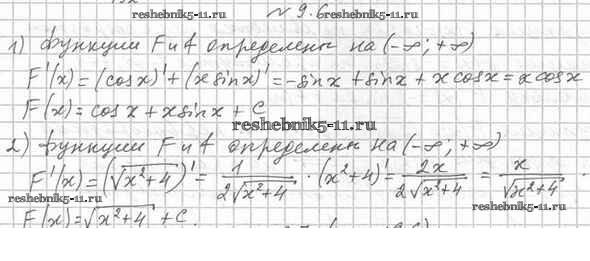 reshebnik5-11.ru
№ 9.6
1) Функции F и f определены на (-∞; +∞)
F'(x) = (cosx)' + (x sinx)' = -sinx + sinx + x cosx = x cosx
F(x) = cosx + x sinx + C
reshebnik5-11.ru
2) Функции F и f определены на (-∞; +∞)
F'(x) = (√(x²+4))' = 1/(2√(x²+4)) · (x²+4)' = 2x/(2√(x²+4)) = x/√(x²+4) .
reshebnik5-11.ru reshebnik5-11.ru
F(x) = √(x²+4) + C.